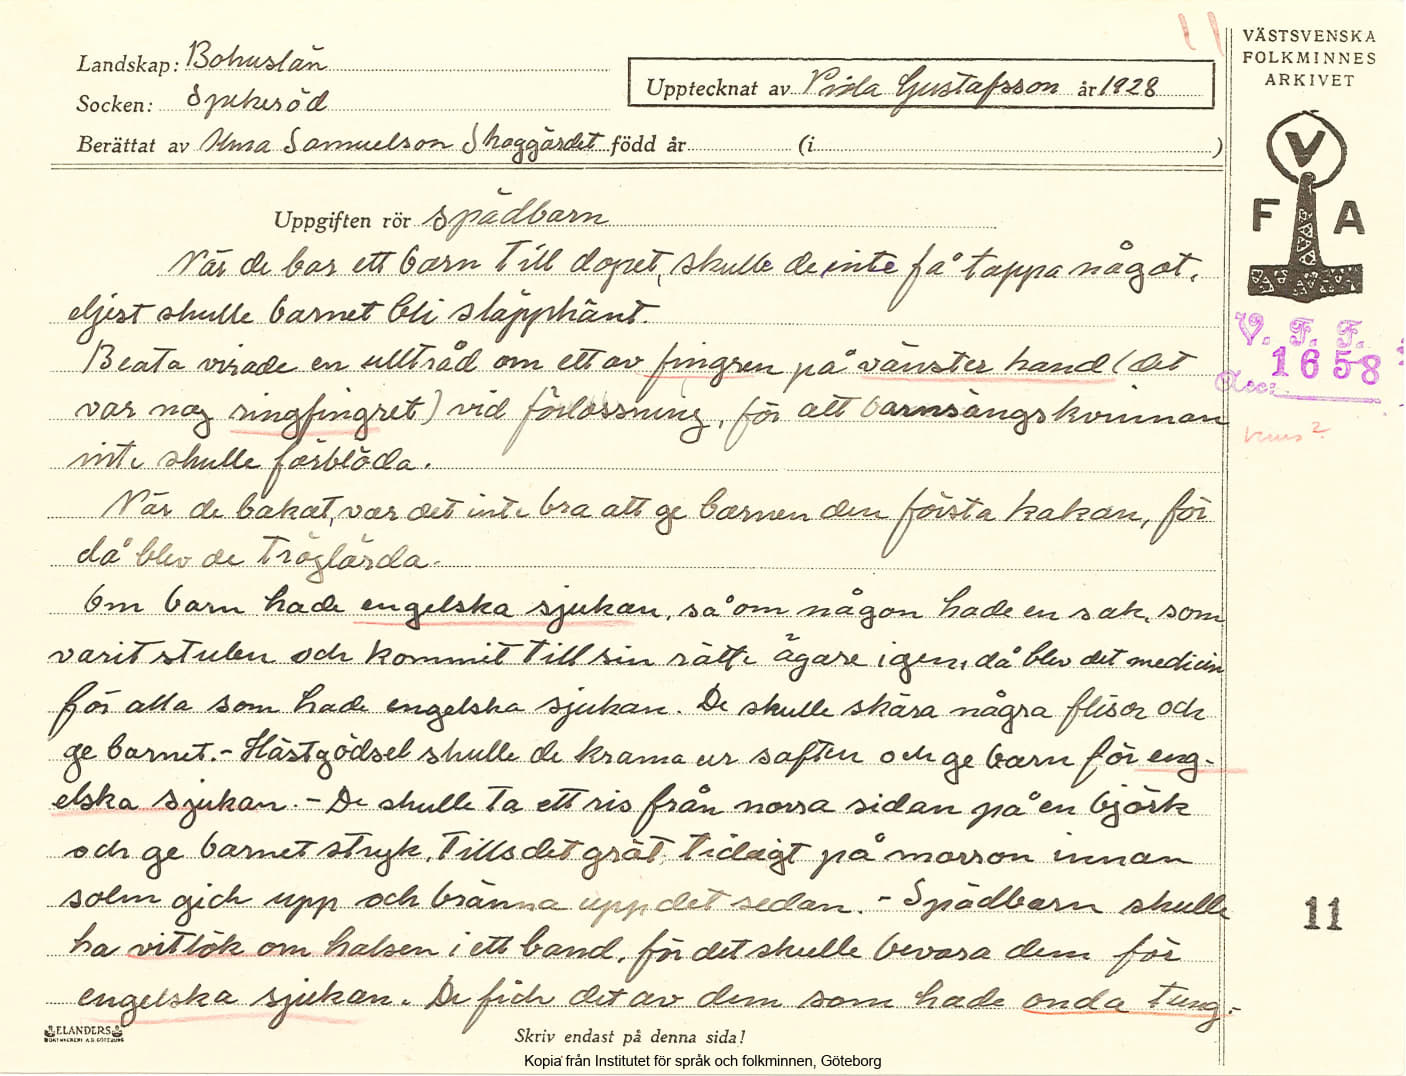 11
VÄSTSVENSKA
FOLKMINNES
ARKIVET
Landskap: Bohuslän
Socken: Spekeröd
Upptecknat av Frida Gustafsson år 1928
Berättat av Anna Samuelson Skoggärdet född år (i )
V
F A
Uppgiften rör Spädbarn
När de bar ett barn till dopet, skulle de inte få tappa något,
eljest skulle barnet bli släpphänt.
Beata virade en ulltråd om ett av fingren på vänster hand (det
var nog ringfingret) vid förlossning, för att barnsängskvinnan
inte skulle förblöda.
När de bakat, var det inte bra att ge barnen den första kakan, för
då blev de tröglärda.
Om barn hade engelska sjukan, så om någon hade en sak, som
varit stulen och kommit till sin rätte ägare igen, då blev det medicin
för alla som hade engelska sjukan. De skulle skära några flisor och
ge barnet. - Hästgödsel skulle de krama ur saften och ge barn för eng-
elska sjukan. - De skulle ta ett ris från norra sidan på en björk
och ge barnet stryk, tills det grät, tidigt på morron innan
solen gick upp och bränna upp det sedan. - Spädbarn skulle
ha vitlök om halsen i ett band, för det skulle bevara dem för
engelska sjukan. De fick det av dem som hade onda tung-
V. F. F.
1658
Acc:
11
ELANDERS
BOKTRYCKERI A.B. GÖTEBORG
Skriv endast på denna sida!
Kopia från Institutet för språk och folkminnen, Göteborg